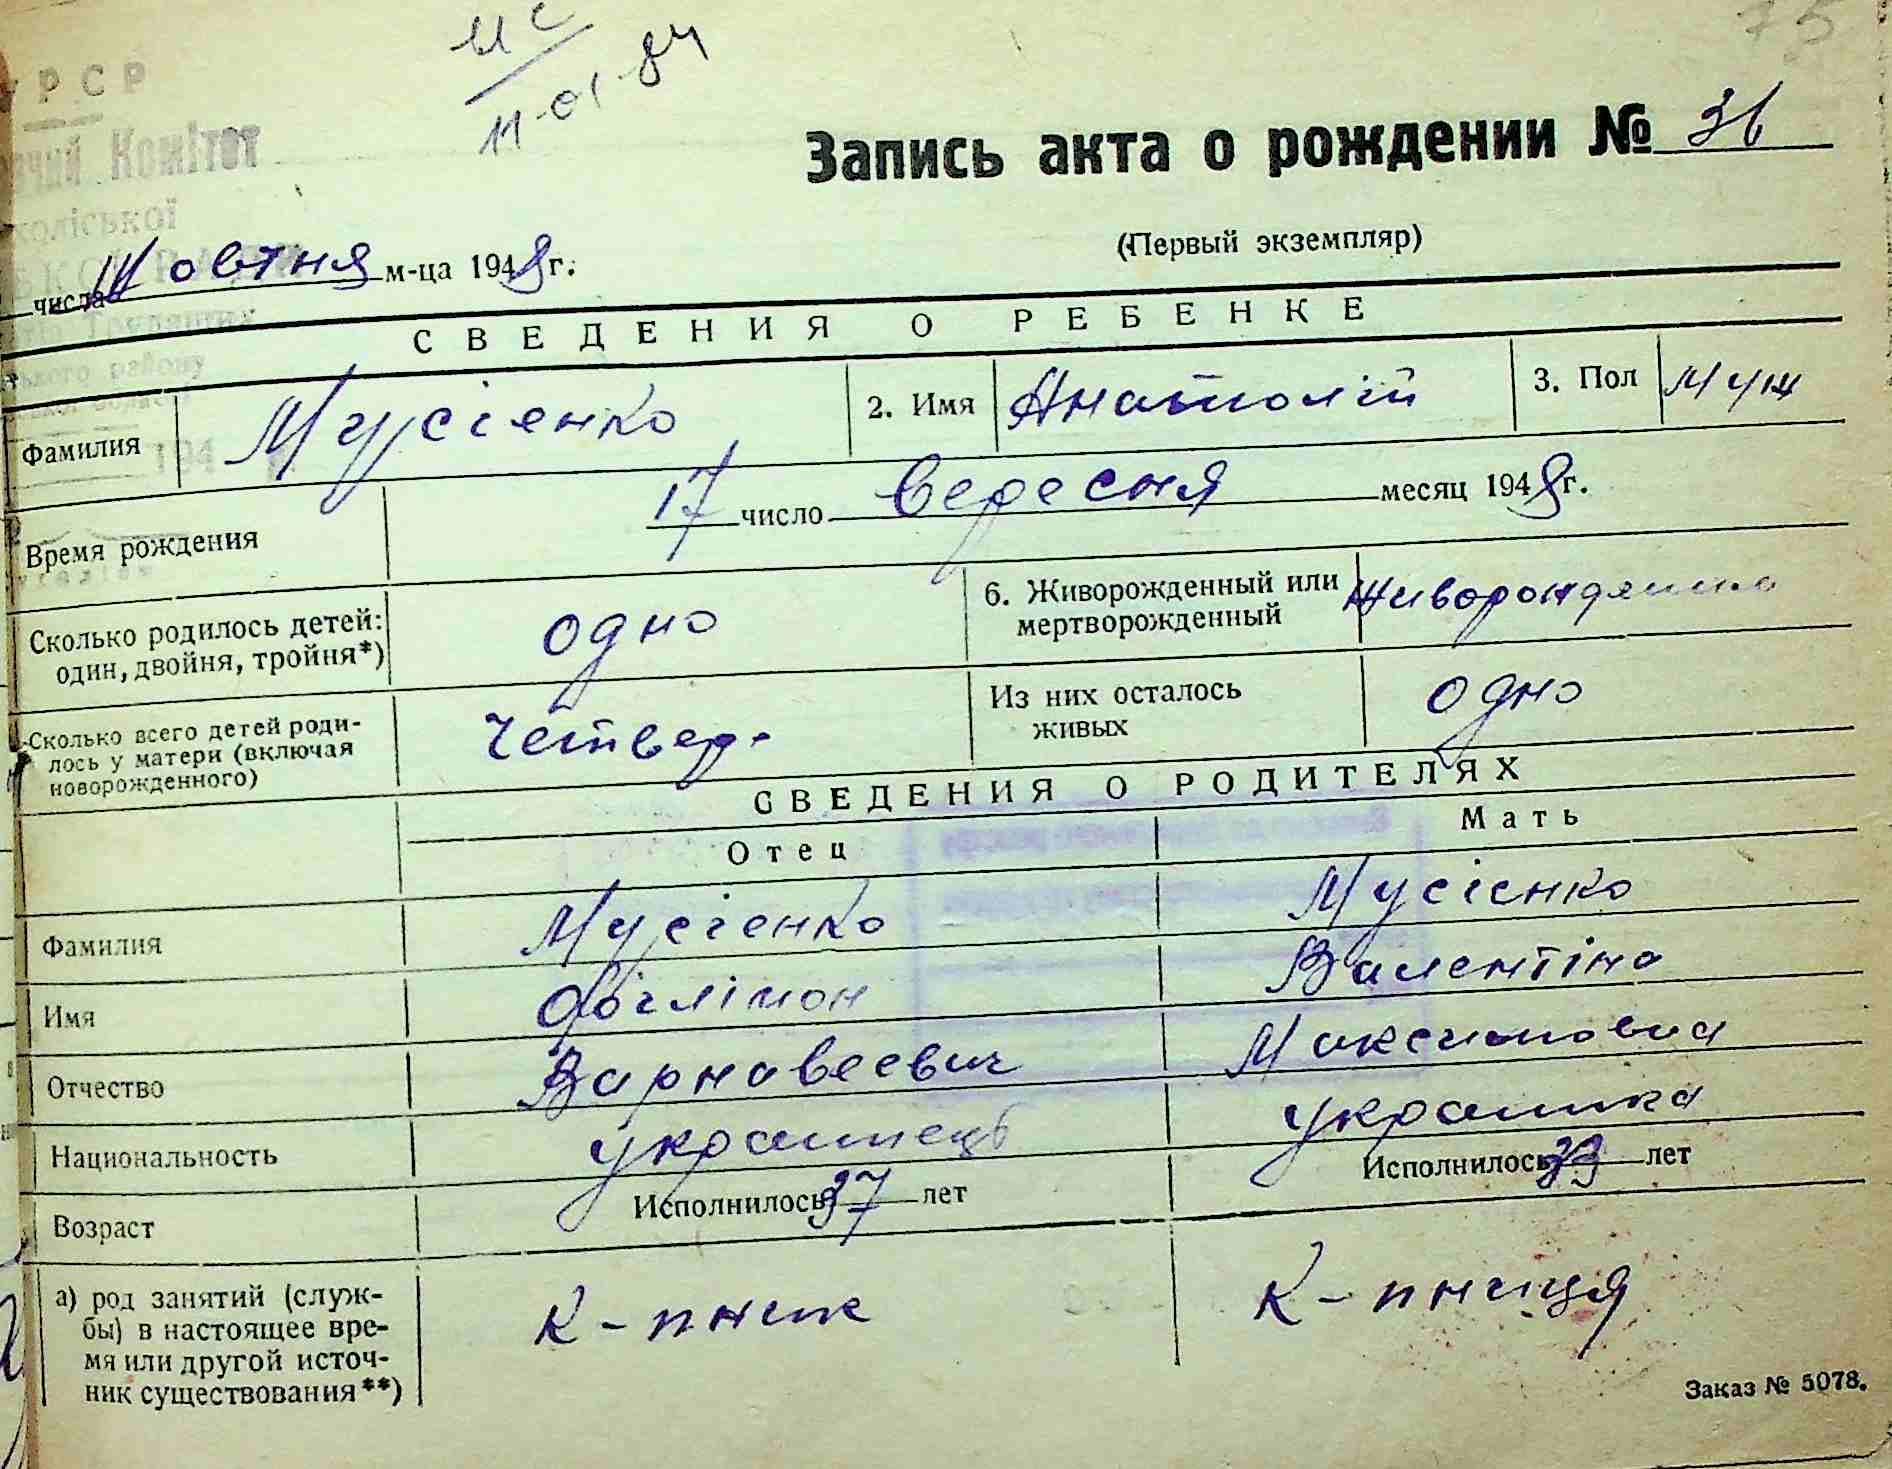 75
11-01 84
УРСР
Комітет
Запись акта о рождении № 36
(Первый экземпляр)
числа Жовтня м-ца 1948 г.
СВЕДЕНИЯ О РЕБЕНКЕ
Фамилия Мусієнко 2. Имя Анатолій 3. Пол Муж
Время рождения 17 число Вересня месяц 1948 г.
Сколько родилось детей: один, двойня, тройня*) одно 6. Живорожденный или мертворожденный
Сколько всего детей родилось у матери (включая новорожденного) Четвер. Из них осталось живых одно
СВЕДЕНИЯ О РОДИТЕЛЯХ
Отец Мать
Фамилия Мусієнко Мусієнко
Имя Валентіна
Отчество Варнавеевич Максимовна
Национальность українець українка
Возраст Исполнилось 37 лет Исполнилось 33 лет
а) род занятий (службы) в настоящее время или другой источник существования**) К-пник К-пниця
Заказ № 5078.